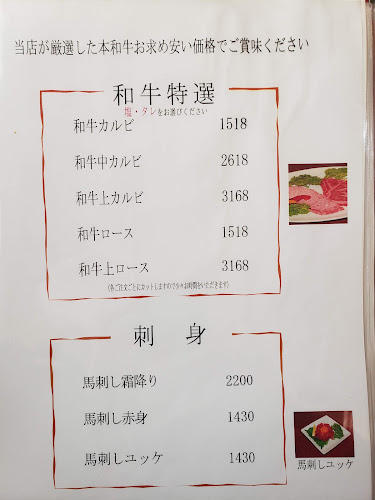 当店が厳選した本和牛お求め安い価格でご賞味ください
和牛特選
塩・タレをお選びください
和牛カルビ 1518
和牛中カルビ 2618
和牛上カルビ 3168
和牛ロース 1518
和牛上ロース 3168
(各ご注文ごとにカットしますので少々お時間をいただきます)
刺 身
馬刺し霜降り 2200
馬刺し赤身 1430
馬刺しユッケ 1430
馬刺しユッケ